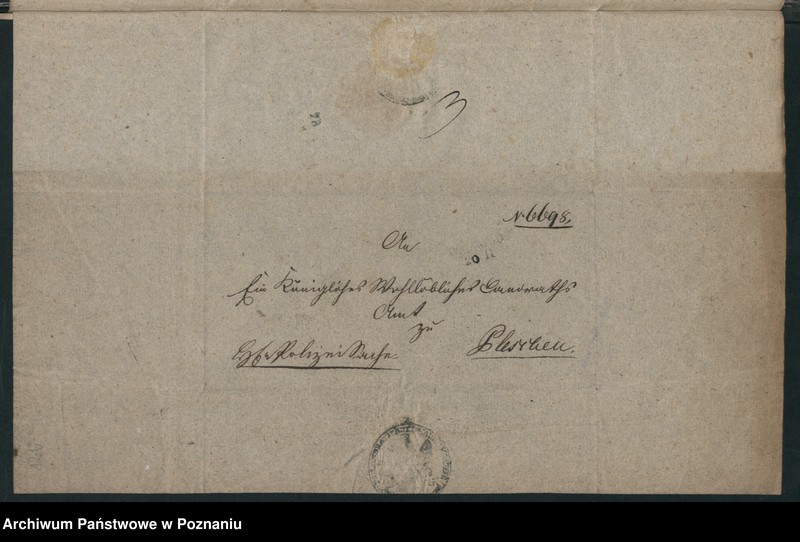 3
N 6698.
An
Ein Königliches Wohllöbliches Landraths
Amt
zu
Polizei Sache. Pleschen.
Archiwum Państwowe w Poznaniu